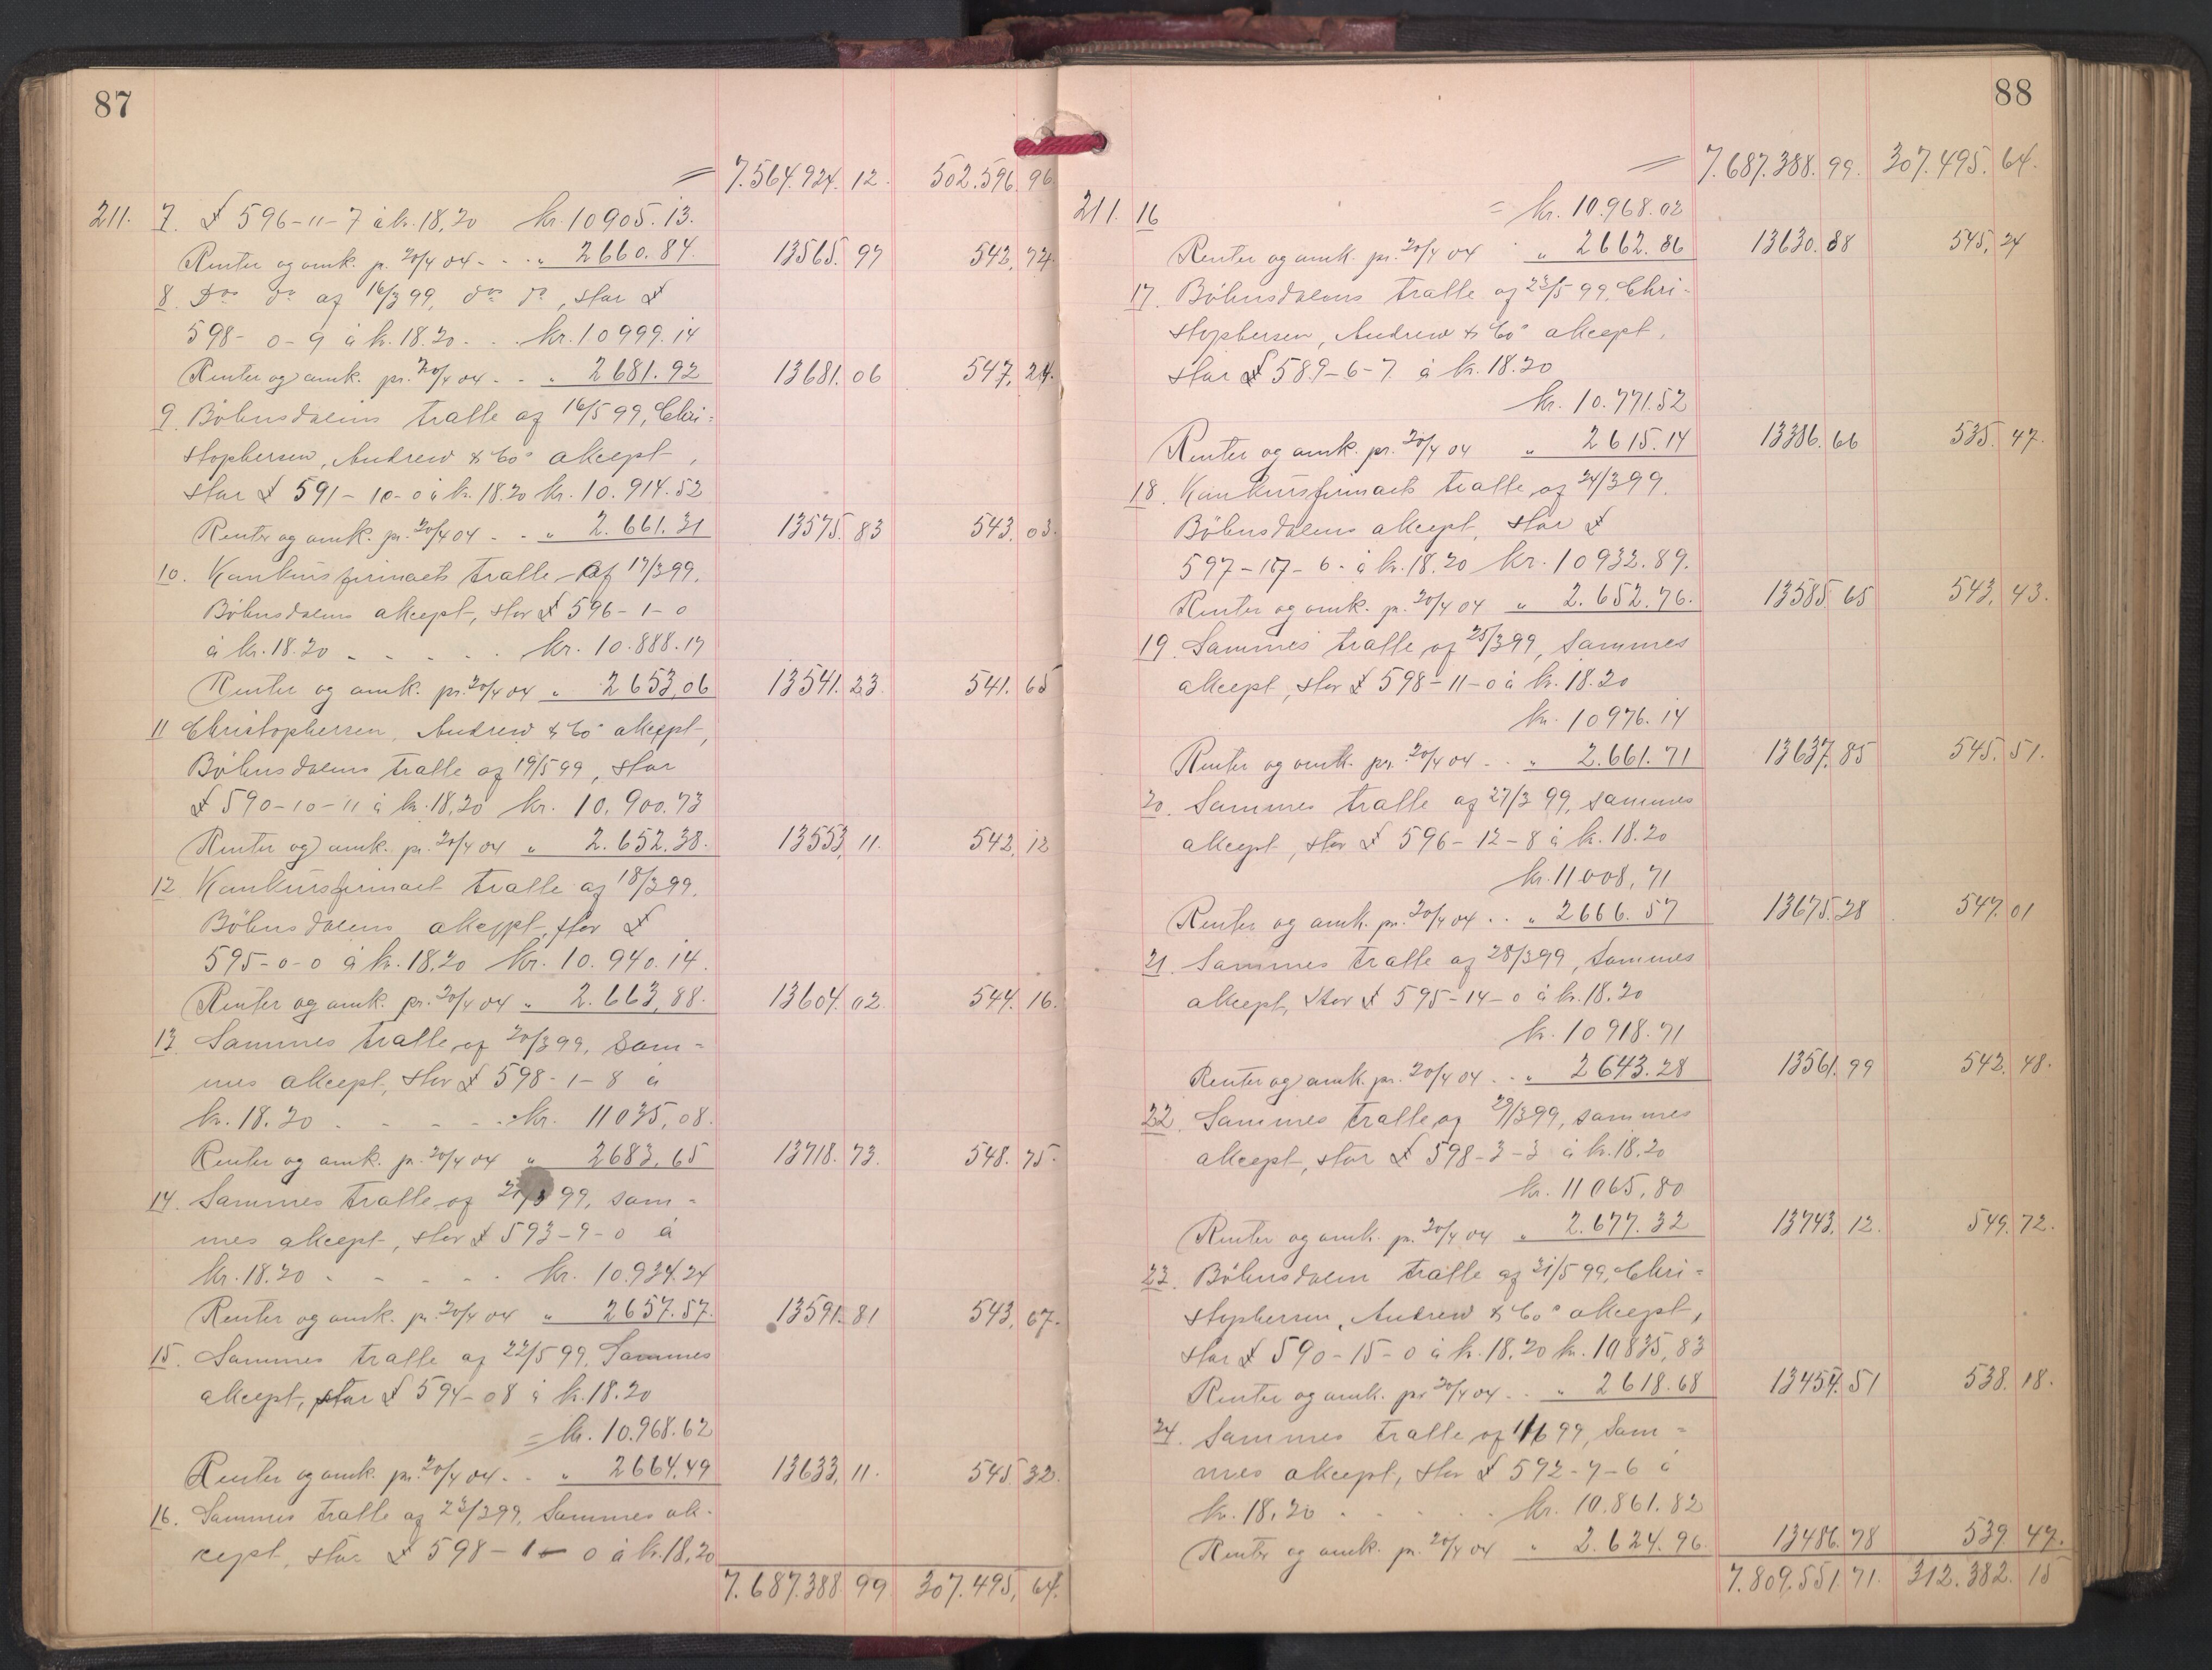 87
= 7.564.924. 12. 502.596. 96
211. 7. £ 596-11-7 à kr. 18,20 kr. 10905.13.
Renter og omk. p. 20/4 04 - - " 2660.84. 13565. 97 542, 72.
8 Dos do af 16/3 99, dos do, stor £
598- 0-9 à kr. 18.20 - . . kr. 10999.14
Renter og omk. pr. 20/4 04 - - " 2681.92 13681. 06 547, 24.
9. Böhnsdalens tratte af 16/5 99, Chri=
stophersen, Andrew & Co's aksept,
stor £ 591-10-0 à kr. 18.20 kr. 10.914.52
Renter og omk. pr. 20/4 04 - - " 2.661.31 13575. 83 543. 03.
10. Konkursfirmaets tratte af 17/3 99.
Böhnsdalens aksept, stor £ 596-1-0
à kr. 18.20 - - - - . kr. 10.888.17
Renter og omk. pr. 20/4 04 " 2653,06 13541. 23. 541. 65
11 Christophersen, Andrew & Co's aksept,
Böhnsdalens tratte af 19/5 99, stor
£ 590-10-11 à kr. 18,20 kr. 10.900.73
Renter og omk. pr. 20/4 04 " 2.652.38. 13553, 11. 542, 12
12 Konkursfirmaet tratte af 18/3 99.
Böhnsdalens aksept, stor £
595-0-0 à kr. 18.20 kr. 10.940.14.
Renter og omk. pr. 20/4 04 " 2.663,88. 13604. 02. 544. 16.
13. Sammes tratte af 20/3 99, Sam=
mes aksept, stor £ 598-1-8 à
kr. 18.20 - - - - . kr. 11035,08.
Renter og omk. pr. 20/4 04 " 2683,65 13718. 73. 548. 75.
14. Sammes tratte af 21/3 99, sam=
mes aksept, stor £ 593-9-0 à
kr. 18.20 . - - - . kr. 10.934.24
Renter og omk. pr. 20/4 04 " 2657.57. 13591. 81 543, 67.
15. Sammes tratte af 22/5 99, Sammes
aksept, stor £ 594-08 à kr. 18.20
= kr. 10.968.62
Renter og omk. pr. 20/4 04 . . " 2664.49 13633, 11. 545. 32.
16. Sammes tratte af 23/3 99, Sammes ak-
cept, stor £ 598-1-0 à kr. 18,20
7.687.388 99 307.495, 64.
88
= 7.687.388. 99. 307.495. 64.
211. 16 = kr. 10.968.02
Renter og omk. pr. 20/4 04 " 2662.86 13630. 88 545, 24
17. Böhnsdalens tratte af 23/5 99, Chri-
stophersen, Andrew & Co's aksept,
stor £ 589-6-7 à kr. 18.20
kr. 10.771.52
Renter og omk. pr. 20/4 04 " 2615.14 13386. 66 535. 47.
18. Konkursfirmaets tratte af 24/3 99.
Böhnsdalens aksept, stor £
597-17-6 à kr. 18.20 kr. 10932.89.
Renter og omk. p. 20/4 04 " 2.652.76. 13585 65 543, 43.
19. Sammes tratte af 25/3 99, Sammes
aksept, stor £ 598-11-0 à kr. 18.20
kr. 10976.14
Renter og omk. pr. 20/4 04 . . " 2.661.71 13637. 85 545. 51.
20. Sammes tratte af 27/3 99, sammes
aksept, stor £ 596-12-8 à kr. 18.20
kr. 11008,71
Renter og omk. pr. 20/4 04 . . " 2666.57 13675. 28 547. 01
21. Sammes tratte af 28/3 99, Sammes
aksept, stor £ 595-14-0 à kr. 18.20
kr. 10918.71
Renter og omk. pr. 20/4 04 . . " 2643.28 13561. 99 542. 48.
22. Sammes tratte af 29/3 99, sammes
aksept, stor £ 598-3-3 à kr. 18.20
kr. 11065,80
Renter og omk. pr. 20/4 04 " 2.677.32 13743. 12. 549. 72.
23. Böhnsdalen tratte af 31/5 99, Chri=
stophersen, Andrew & Co's aksept,
stor £ 590-15-0 à kr. 18.20 kr. 10835,83
Renter og omk. pr 20/4 04 . . " 2618.68 13454. 51 538. 18.
24. Sammes tratte af 1/6 99, Sam=
mes aksept, stor £ 592-7-6 à
kr. 18,20 . . . . . kr. 10.861.82
Renter og omk. pr. 20/4 04 " 2.624.96. 13486. 78 539. 47.
7.809.551. 71. 312.382. 15